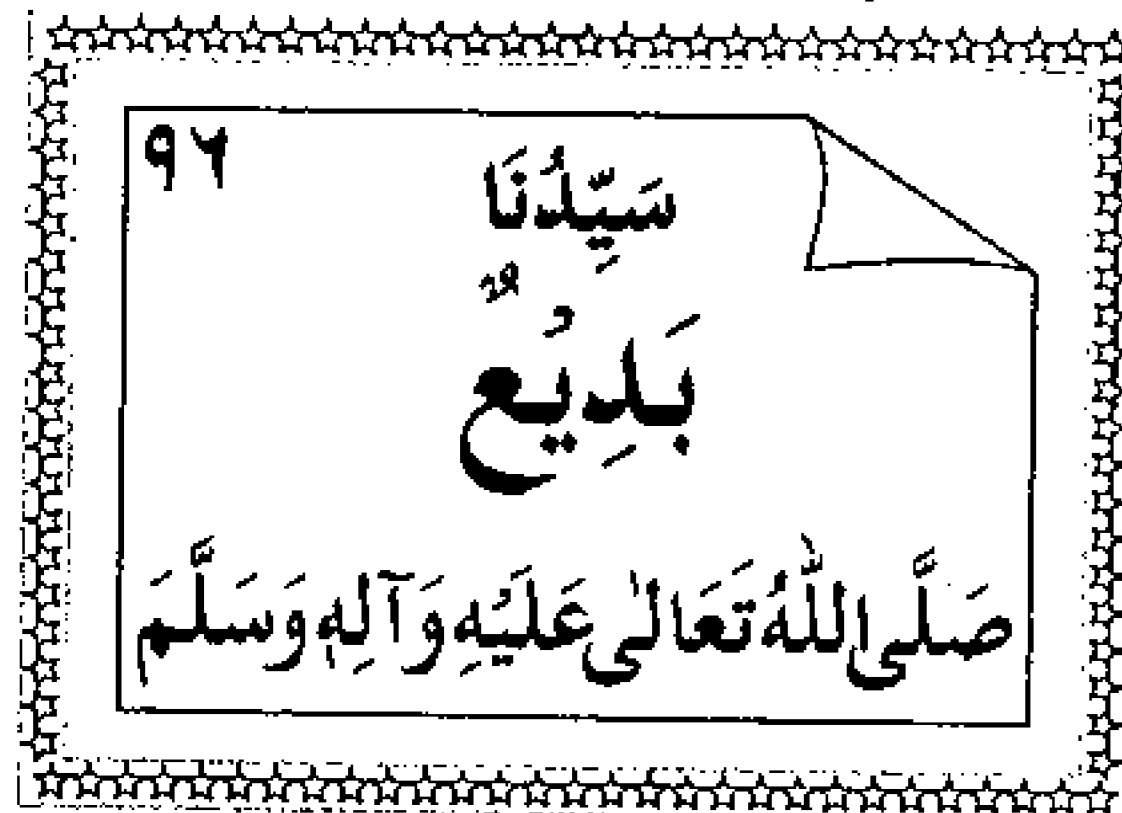 ٩٦
سَيِّدُنَا
بَدِيْعٌ
صَلَّى اللّٰهُ تَعَالٰى عَلَيْهِ وَآلِهٖ وَسَلَّمَ